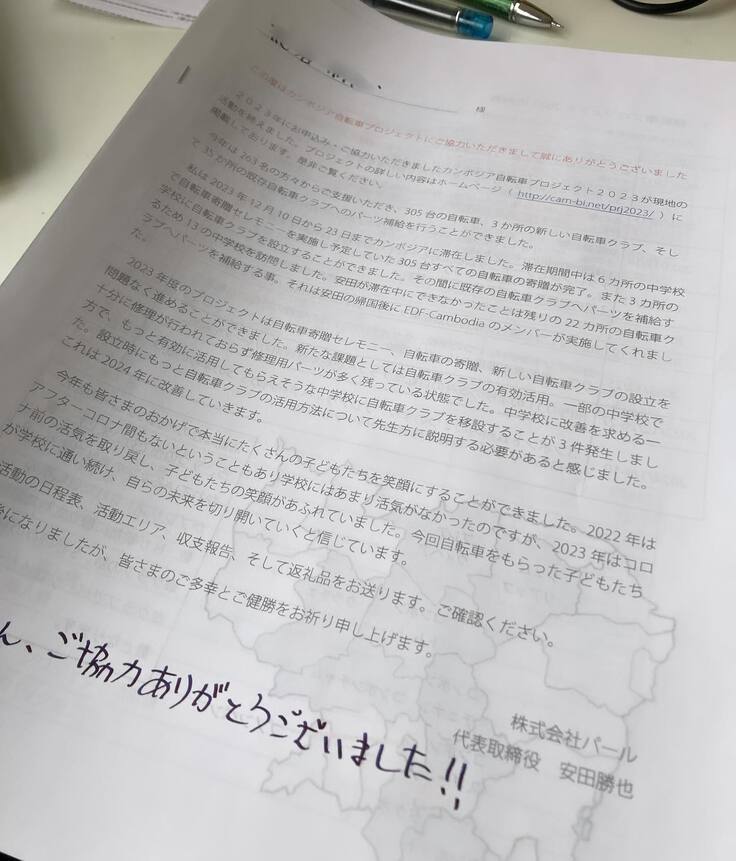 様
この度はカンボジア自転車プロジェクトにご協力いただきまして誠にありがとうございました
2023年にお申込み・ご協力いただきましたカンボジア自転車プロジェクト2023が現地の
活動を終えました。プロジェクトの詳しい内容はホームページ（ http://cam-bi.net/prj2023/ ）に
掲載しております。是非ご覧ください。
今年は263名の方々からご支援いただき、305台の自転車、3か所の新しい自転車クラブ、そし
て35か所の既存自転車クラブへのパーツ補給を行うことができました。
私は2023年12月10日から23日までカンボジアに滞在しました。滞在期間中は6カ所の中学校
で自転車寄贈セレモニーを実施し予定していた305台すべての自転車の寄贈が完了。また3カ所の
学校に自転車クラブを設立することができました。その間に既存の自転車クラブへパーツを補給す
るため13の中学校を訪問しました。安田が滞在中にできなかったことは残りの22カ所の自転車ク
ラブへパーツを補給する事。それは安田の帰国後にEDF-Cambodiaのメンバーが実施してくれまし
た。
2023年度のプロジェクトは自転車寄贈セレモニー、自転車の寄贈、新しい自転車クラブの設立を
問題なく進めることができました。新たな課題としては自転車クラブの有効活用。一部の中学校で
十分に修理が行われておらず修理用パーツが多く残っている状態でした。中学校に改善を求める一
方で、もっと有効に活用してもらえそうな中学校に自転車クラブを移設することが3件発生しまし
た。設立時にもっと自転車クラブの活用方法について先生方に説明する必要があると感じました。
これは2024年に改善していきます。
今年も皆さまのおかげで本当にたくさんの子どもたちを笑顔にすることができました。2022年は
アフターコロナ間もないということもあり学校にはあまり活気がなかったのですが、2023年はコロ
ナ前の活気を取り戻し、子どもたちの笑顔があふれていました。今回自転車をもらった子どもたち
が学校に通い続け、自らの未来を切り開いていくと信じています。
活動の日程表、活動エリア、収支報告、そして返礼品をお送ります。ご確認ください。
後になりましたが、皆さまのご多幸とご健勝をお祈り申し上げます。
株式会社パール
代表取締役 安田勝也
ん、ご協力ありがとうございました!!